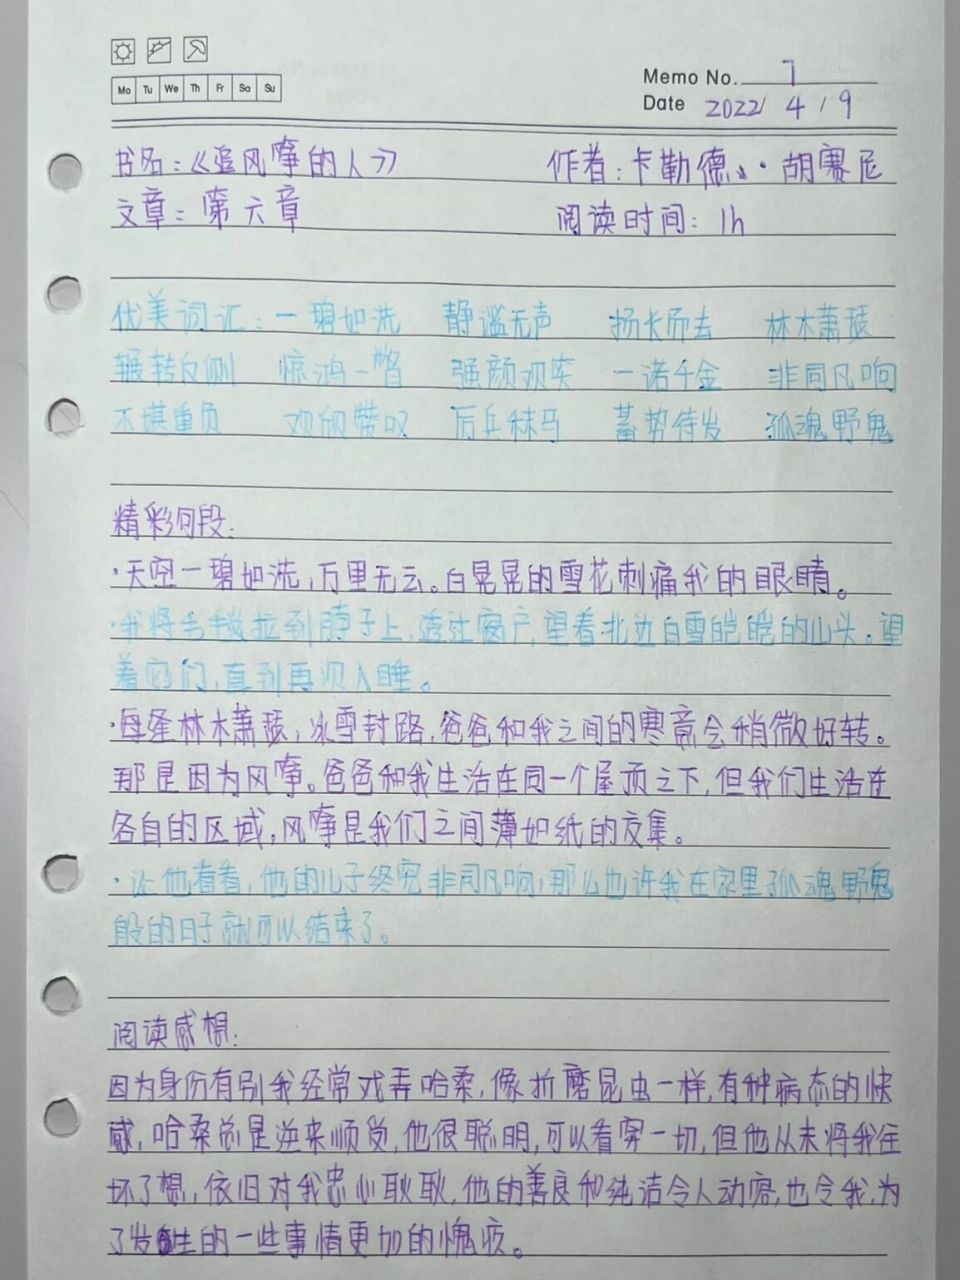 Memo No. 7
Mo Tu We Th Fr Sa Su
Date 2022/4/9
书名:《追风筝的人》 作者:卡勒德·胡赛尼
文章:第六章 阅读时间:1h
优美词汇:一碧如洗 静谧无声 扬长而去 林木萧瑟
辗转反侧 惊鸿一瞥 强颜欢笑 一诺千金 非同凡响
不堪重负 欢欣赞叹 厉兵秣马 蓄势待发 孤魂野鬼
精彩句段:
·天空一碧如洗,万里无云。白晃晃的雪花刺痛我的眼睛。
·我将毛毯拉到脖子上,透过窗户,望着北边白雪皑皑的山头。望
着它们,直到再次入睡。
·每逢林木萧瑟,冰雪封路,爸爸和我之间的寒意会稍微好转。
那是因为风筝。爸爸和我生活在同一个屋顶之下,但我们生活在
各自的区域,风筝是我们之间薄如纸的交集。
·让他看看,他的儿子终究非同凡响,那么也许我在家里孤魂野鬼
般的日子就可以结束了。
阅读感想:
因为身份有别我经常戏弄哈桑,像折磨昆虫一样,有种病态的快
感,哈桑总是逆来顺受,他很聪明,可以看穿一切,但他从未将我往
坏了想,依旧对我忠心耿耿,他的善良和纯洁令人动容,也令我,为
了发生的一些事情更加的愧疚。